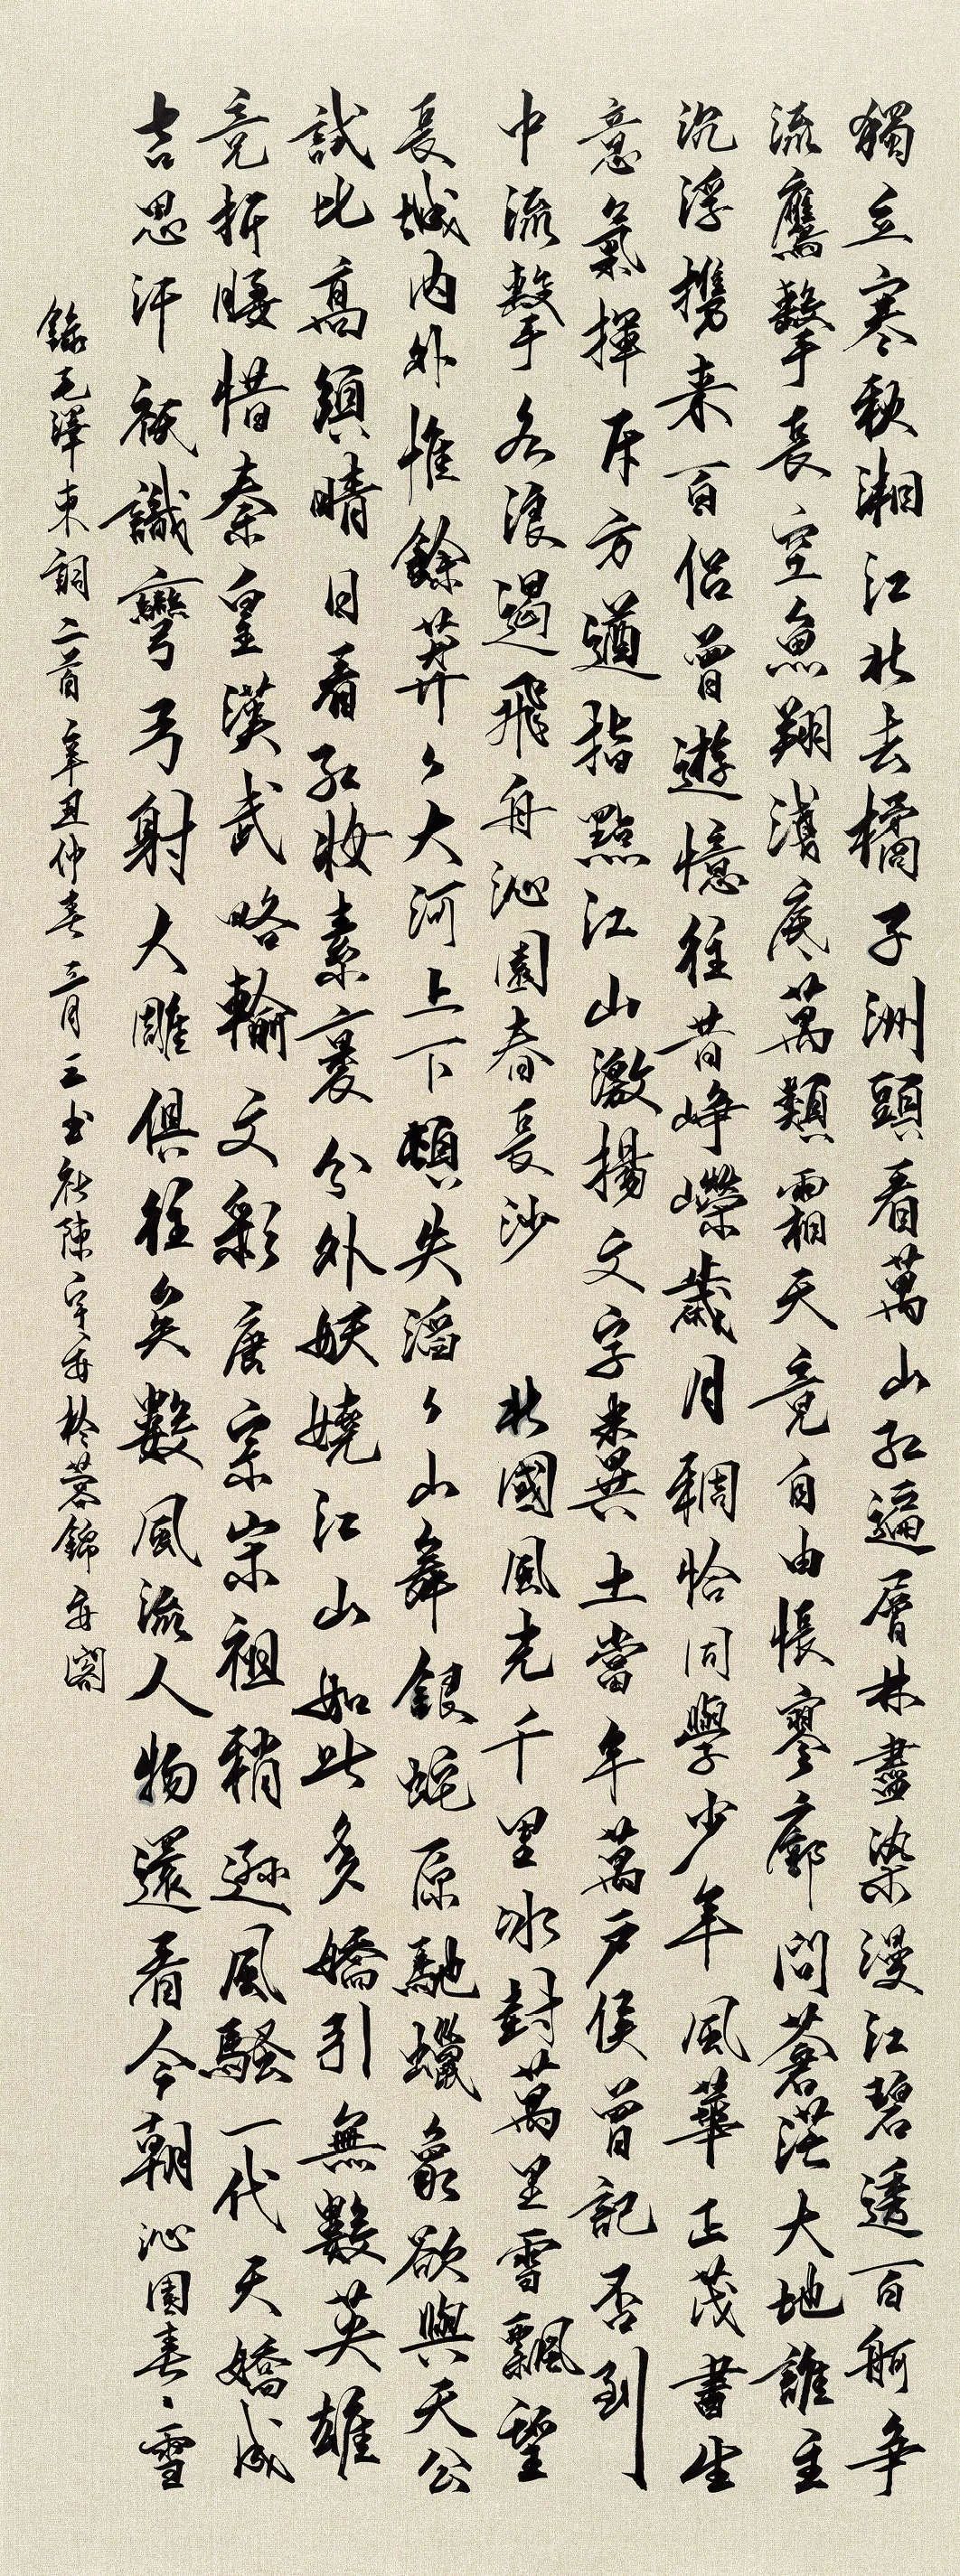 獨立寒秋湘江北去橘子洲頭看萬山红遍層林盡染漫江碧透百舸争
流鷹擊長空魚翔淺底萬類霜天竞自由悵寥廓問蒼茫大地誰主
沉浮携来百侣曾遊憶往昔崢嶸歲月稠恰同學少年風華正茂書生
意氣揮斥方遒指點江山激揚文字糞土當年萬户侯曾記否到
中流擊水浪遏飛舟沁園春長沙 北國風光千里冰封萬里雪飄望
長城内外惟餘莽々大河上下頓失滔々山舞銀蛇原馳蠟象欲與天公
試比高須晴日看红妝素裹分外妖嬈江山如此多嬌引無數英雄
竞折腰惜秦皇漢武略輸文彩唐宗宋祖稍遜風騷一代天嬌成
吉思汗祇識彎弓射大雕俱往矣數風流人物還看今朝沁園春、雪
錄毛澤東詞二首辛丑仲春三月三书社陳宇安於蓉錦安閣